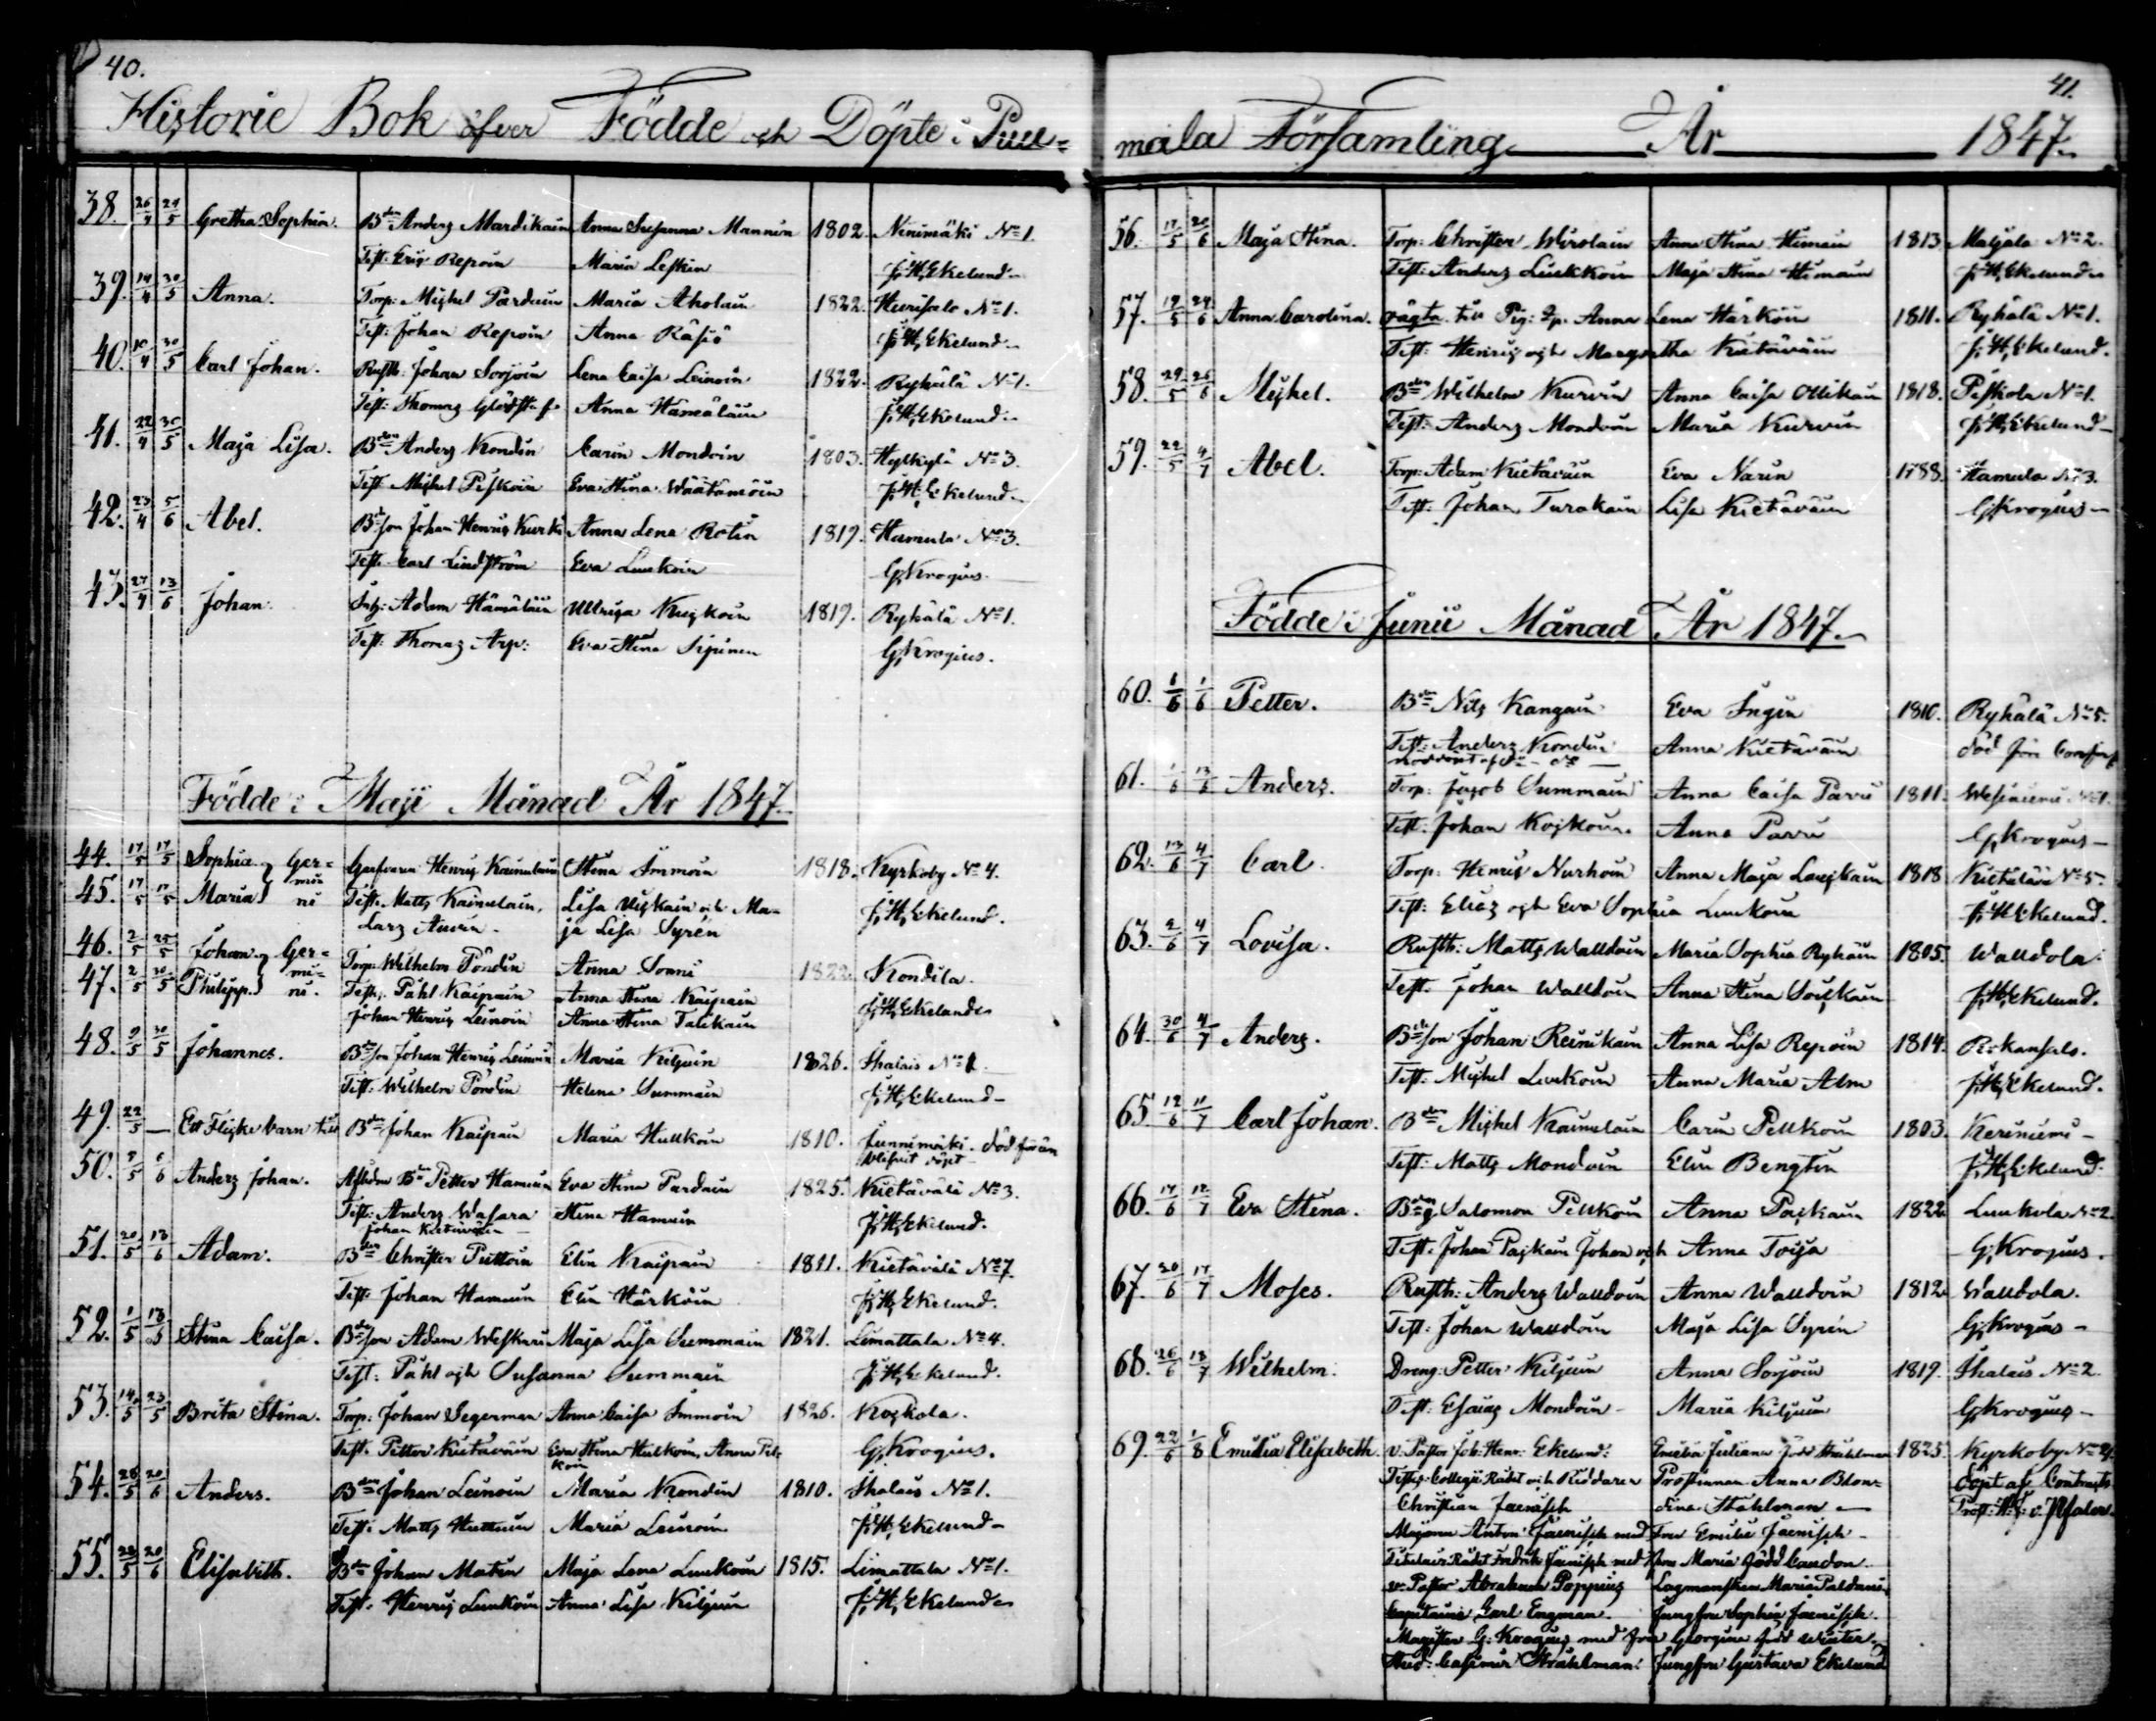 40.
Historie Bok öfver Födde och Döpte i Puu=
38. 26/4 24/5 Gretha Sophia. Bden Anders Mardikain Anna Susanna Mannin 1802. Ninimäki No 1.
Test: Eric Repoin Maria Leskin J.H. Ekelund.
39. 14/4 30/5 Anna. Torp: Michel Parduin Maria Aholain 1822. Hurisalo No 1.
Test: Johan Repoin Anna Räsiö J.H. Ekelund.
40. 10/4 30/5 Carl Johan. Rusth: Johan Sorjoin Lena Caisa Leinoin 1822. Rykälä No 1.
Test: Thomas Anna Hämäläin J.H. Ekelund.
41. 22/4 30/5 Maja Lisa. Bden Anders Kondin Carin Mondoin 1803. Hylkylä No 3.
Test: Michel Peskoin Eva Stina Wäätämöin J.H. Ekelund.
42. 23/4 5/6 Abel. Bdeson Johan Henric Kurki Anna Lena Rotin 1819. Hamula No 3.
Test: Carl Lindström Eva Luukoin G. Krogius.
43. 27/4 13/6 Johan. Adam Hämäläin Ullrica Kuckoin 1819. Rykälä No 1.
Test: Thomas Arp: Eva Stina Sipinen G. Krogius.
Födde i Maji Månad År 1847.
44. 17/5 17/5 Sophia Ger= Henric Kaimulain Stina Immoin 1818. Kyrkoby No 4.
mi=
45. 17/5 17/5 Maria ni Test: Matts Kaimulain, Lisa Uskain och Ma= J.H. Ekelund.
Lars Auvin. ja Lisa Syrén
46. 2/5 25/5 Johan Ger= Torp: Wilhelm Pöndin Anna Sonni 1822. Kondila.
mi=
47. 2/5 30/5 Philipp. ni. Test: Påhl Kaipain Anna Stina Kaipain J.H. Ekelund
Johan Henric Leinoin Anna Stina Talikain
48. 9/5 30/5 Johannes. Bdeson Johan Henric Leinoin Maria Kiljuin 1826. Ihalais No 1.
Test: Wilhelm Pöndin Helena Summain J.H. Ekelund
49. 22/5 — Ett Flicke barn till Bden Johan Kaipain Maria Hulkoin 1810. Junnimäki. död för än
blifvit döpt
50. 8/5 6/6 Anders Johan. Bde Petter Hamuin Eva Stina Pardain 1825. Kietävälä No 3.
Test: Anders Wasara Stina Hamuin J.H. Ekelund.
Johan Kietäväin
51. 20/5 13/6 Adam. Bden Christer Puttoin Elin Kaipain 1811. Kietävälä No 7.
Test: Johan Hamuin Elin Härköin J.H. Ekelund.
52. 1/5 13/5 Stina Caisa. Bdeson Adam Weskari Maja Lisa Summain 1821. Limattala No 4.
Test: Påhl och Susanna Summain J.H. Ekelund.
53. 14/5 23/5 Brita Stina. Torp: Johan Segerman Anna Caisa Immoin 1826. Koskola.
Test: Petter Kietäväin Eva Stina Hulkoin, Anna Pel=
koin G. Krogius.
54. 28/5 20/6 Anders. Bden Johan Leinoin Maria Kondin 1810. Ihalais No 1.
Test: Matts Huttuin Maria Leinoin J.H. Ekelund
55. 28/5 20/6 Elisabeth. Bde Johan Matin Maja Lena Luukoin 1815. Limattala No 1.
Test: Henric Luukoin Anna Lisa Kiljuin J.H. Ekelund
41.
mala Församling År 1847.
56. 17/5 20/6 Maja Stina. Torp: Christer Wirolain Anna Stina Himain 1813. Maijala No 2.
Test: Anders Luukkoin Maja Stina Himain J.H. Ekelund
57. 19/5 24/6 Anna Carolina. oägta till Pig: Anna Lena Härköin 1811. Rykälä No 1.
Test: Henric och Margretha Kietäväin J.H. Ekelund.
58. 29/5 26/6 Michel. Bden Wilhelm Kurvin Anna Caisa Ollikain 1818. Peskola No 1.
Test: Anders Mondoin Maria Kurvin J.H. Ekelund
59. 22/5 4/7 Abel. Torp: Adam Kietäväin Eva Narin 1788. Hamula No 3.
Test: Johan Turakain Lisa Kietäväin G. Krogius
Födde i Junii Månad År 1847.
60. 1/6 1/6 Petter. Bde Nils Kangain Eva Ingin 1810. Rykälä No 5.
Test: Anders Kondin Anna Kietäväin död förr
nöddöpt af
61. 1/6 13/6 Anders. Torp: Jacob Summain Anna Caisa Parvi 1811. No 1.
Test: Johan Koskoin. Anna Parvi G. Krogius
62. 13/6 4/7 Carl. Torp: Henric Nurhoin Anna Maja Lauskain 1818 Kietälä No 5.
Test: Elias och Eva Sophia Luukoin J.H. Ekelund.
63. 2/6 4/7 Lovisa. Rusth: Matts Walldoin Maria Sophia Rykäin 1805. Walldola.
Test: Johan Walldoin Anna Stina Soickain J.H. Ekelund.
64. 30/6 4/7 Anders. Bdeson Johan Reinikain Anna Lisa Repoin 1814. Rekansalo.
Test: Michel Luukoin Anna Maria Alm J.H. Ekelund.
65. 12/6 11/7 Carl Johan. Bden Michel Kaimulain Carin Pellkoin 1803. Keriniemi
Test: Matts Mondoin Elin Bengtin J.H. Ekelund.
66. 14/6 12/7 Eva Stina. Bdes Salomon Pellkoin Anna Paskain 1822 Luukola No 2
Test: Johan Paskain Johan och Anna Toija G. Krogius.
67. 20/6 17/7 Moses. Rusth: Anders Walldoin Anna Walldoin 1812. Walldola.
Test: Johan Walldoin Maja Lisa Syrén G. Krogius
68. 26/6 18/7 Wilhelm. Dreng: Petter Kiljuin Anna Sorjoin 1819. Ihalais No 2.
Test: Esaias Mondoin Maria Kiljuin G. Krogius
69. 22/6 1/8 Emilia Elisabeth. v: Pastor Joh: Henr: Ekelund: Emelia Juliana född Strahlman 1825. Kyrkoby No 4.
Test: Collegii Rådet och Riddaren Prostinnan Anna Blon= Döpt af Contracts
Christian Jaenisch dina Strahlman Prost: H.J. v: Pfaler.
Majoren Anton Jaenisch med Fru Emilie Jaenisch
Titulair Rådet Fredrik Jaenisch med Fru Maria född Caudon.
v: Pastor Abraham Poppius Lagmanskan Maria Paldani
Capitaine Carl Engman. Jungfru Sophia Jaenisch.
Magister G: Krogius med fru Georgina född Winter
Stud: Casimir Strahlman. Jungfru Gustava Ekelund